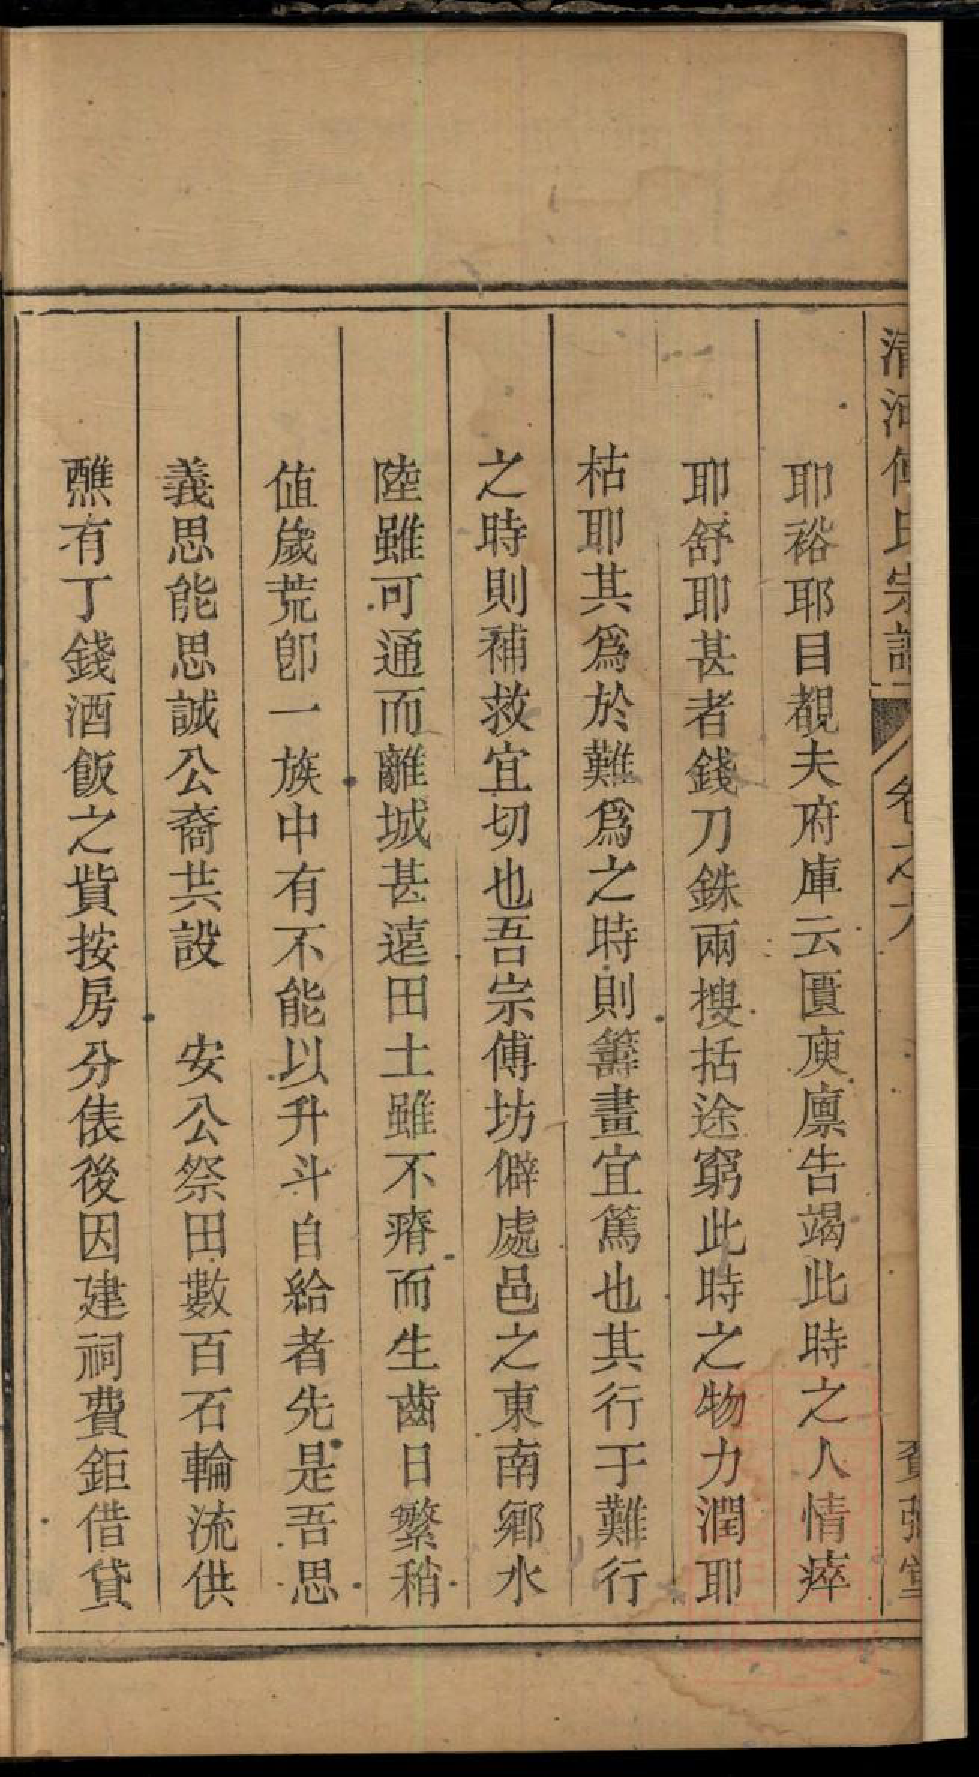 清河傅氏宗譜 卷之六 賚弼堂
耶裕耶目覩夫府庫云匱庾廩告竭此時之人情瘁
耶舒耶甚者錢刀銖兩搜括途窮此時之物力潤耶
枯耶其爲於難爲之時則籌畫宜篤也其行于難行
之時則補救宜切也吾宗傅坊僻處邑之東南鄉水
陸雖可通而離城甚遠田土雖不瘠而生齒日繁稍
値歲荒卽一族中有不能以升斗自給者先是吾思
義思能思誠公裔共設　安公祭田數百石輪流供
醮有丁錢酒飯之貲按房分俵後因建祠費鉅借貸